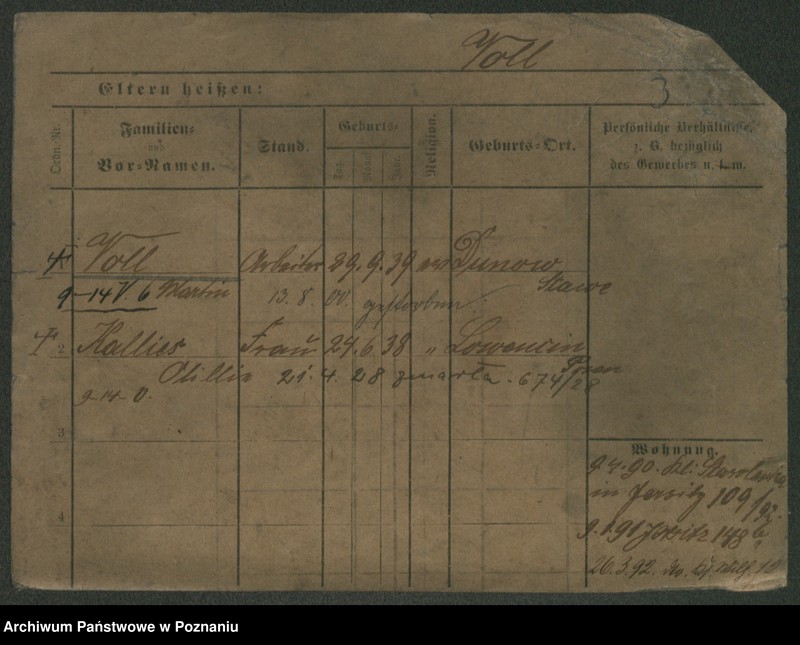 Voll
3
Eltern heißen:
Ordn.-Nr.
Familien-
und
Vor-Namen.
Stand.
Geburts-
Tag.
Monat
Jahr.
Religion.
Geburts-Ort.
Persönliche Verhältnisse,
z. B. bezüglich
des Gewerbes u. s. w.
Voll Arbeiter 29. 9. 39 ev Dunow
9-14 V. 6 Martin 13. 8. 00. gestorben.
2 Kallies Frau 24. 6. 38 " Lowencin
Otillie 21. 4. 28 zmarła. 674/28
9-14-0.
3
4
Wohnung.
9. 4. 90.
in Jersitz 109/92.
9. 1. 91 Jersitz 148b
26. 3. 92.
Archiwum Państwowe w Poznaniu